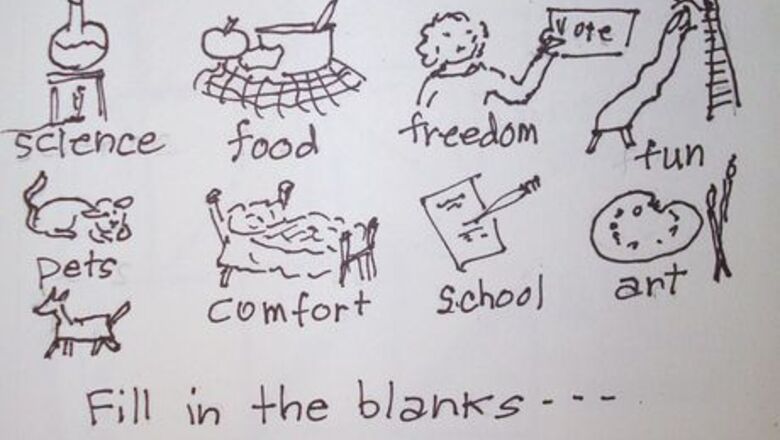 Vote
science food freedom fun
pets comfort school art
Fill in the blanks---